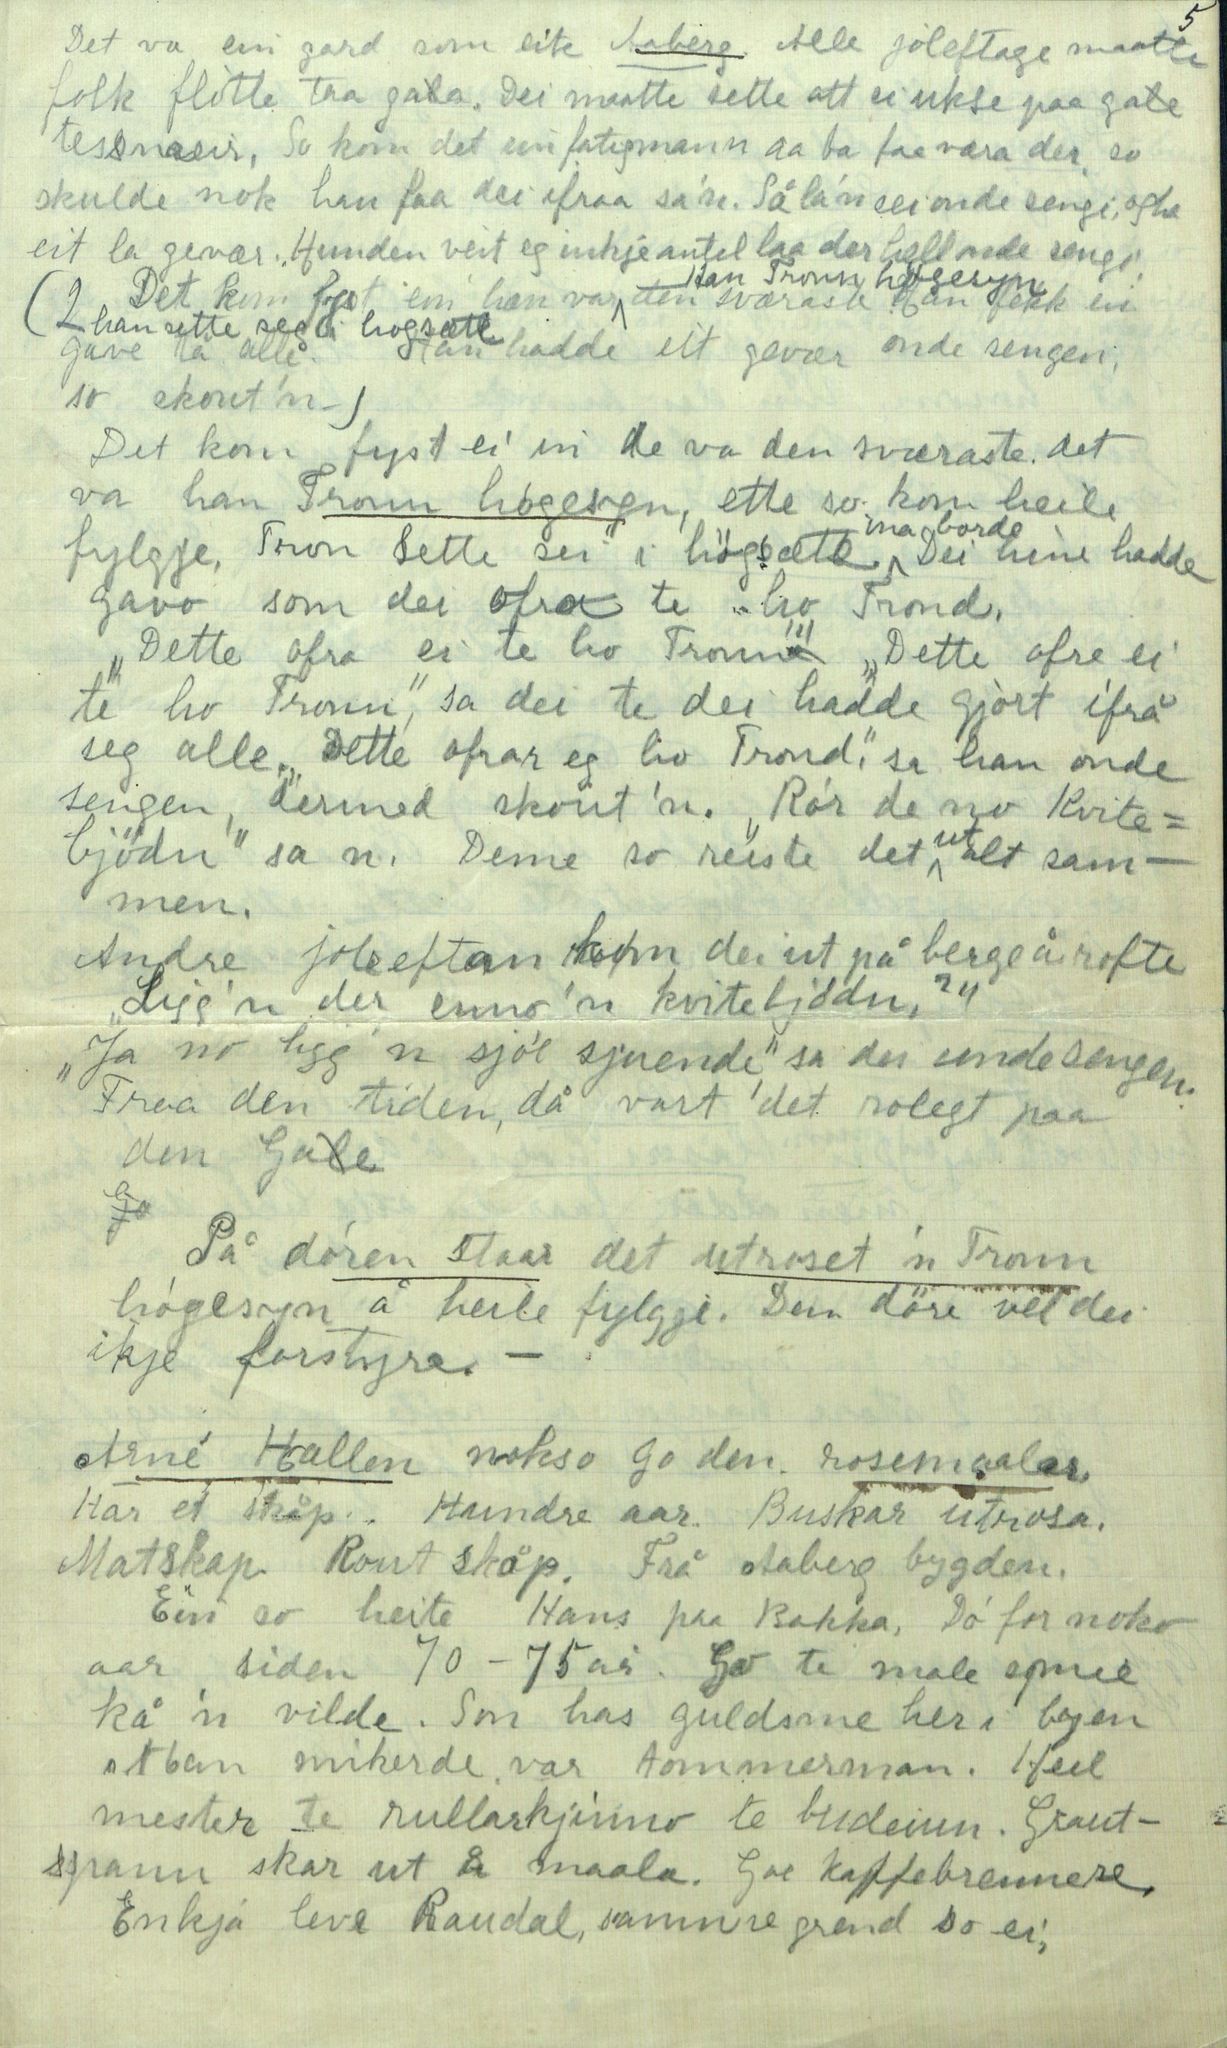 5
Det va ein gard som eite Aaberg. Alle joleftage maatte
folk flötte taa gala. Dei maatte sette att ei ukse paa gale
So kom det ein fatigmann aa ba faa væra der, so
skulde nok han faa dei ifraa sa'n. Så la'n sei onde sengi, og ha
eit la gevær. Hunden veit eg inkje antel laa der hell onde sengi.
han Tronn högesyn
(2 Det kom fyst ein han var den sværaste. Han fekk ei
han sette seg i hogsætt
gave tå alle. Han hadde eit gevær onde sengen,
so skout'n-)
Det kom fyst ei in de va den sværaste. det
va han Tronn högesyn, ette so kom heile
ina borde
fylgje, Tron sette sei i högsætte. Dei hine hadde
gavo som dei ofra te ho Trond.
"Dette ofra ei te ho Tronn" "Dette ofre ei
te ho Tronn", sa dei te dei hadde gjört ifrå
seg alle. "Dette ofrar eg ho Trond," sa han onde
sengen, dermed skout'n. "Rör de no Kvite=
bjödn" sa n. Deme so reiste det ut alt sam-
men.
Andre joleeftan kom dei ut på berge å rofte
"Ligg'n der enno'n kvitebjödn,?"
"Ja no ligg'n sjöl sjuende" sa dei unde sengen.
Fraa den tiden, då vart det rolegt paa
den Gale
På dören staar det utroset 'n Tronn
högesyn å heile fylgje. Den döre vel dei
ikje forstyre. -
Arne Hallen nokso go den rosemaalar.
Har et skåp. Hundre aar. Buskar utrosa.
Matskap. Rout skåp. Frå Aaberg bygden.
Ein so heite Hans paa Bakka. Dö for noko
aar siden 70-75 år. Go te male
kå'n vilde. Son has guldsme her i byen
var tommerman. Heil
mester te rullarkjinno te budeiun. Graut-
spann skar ut å maala. Goe kaffebrennere.
Enkjå leve Raudal, samnre grend so ei,